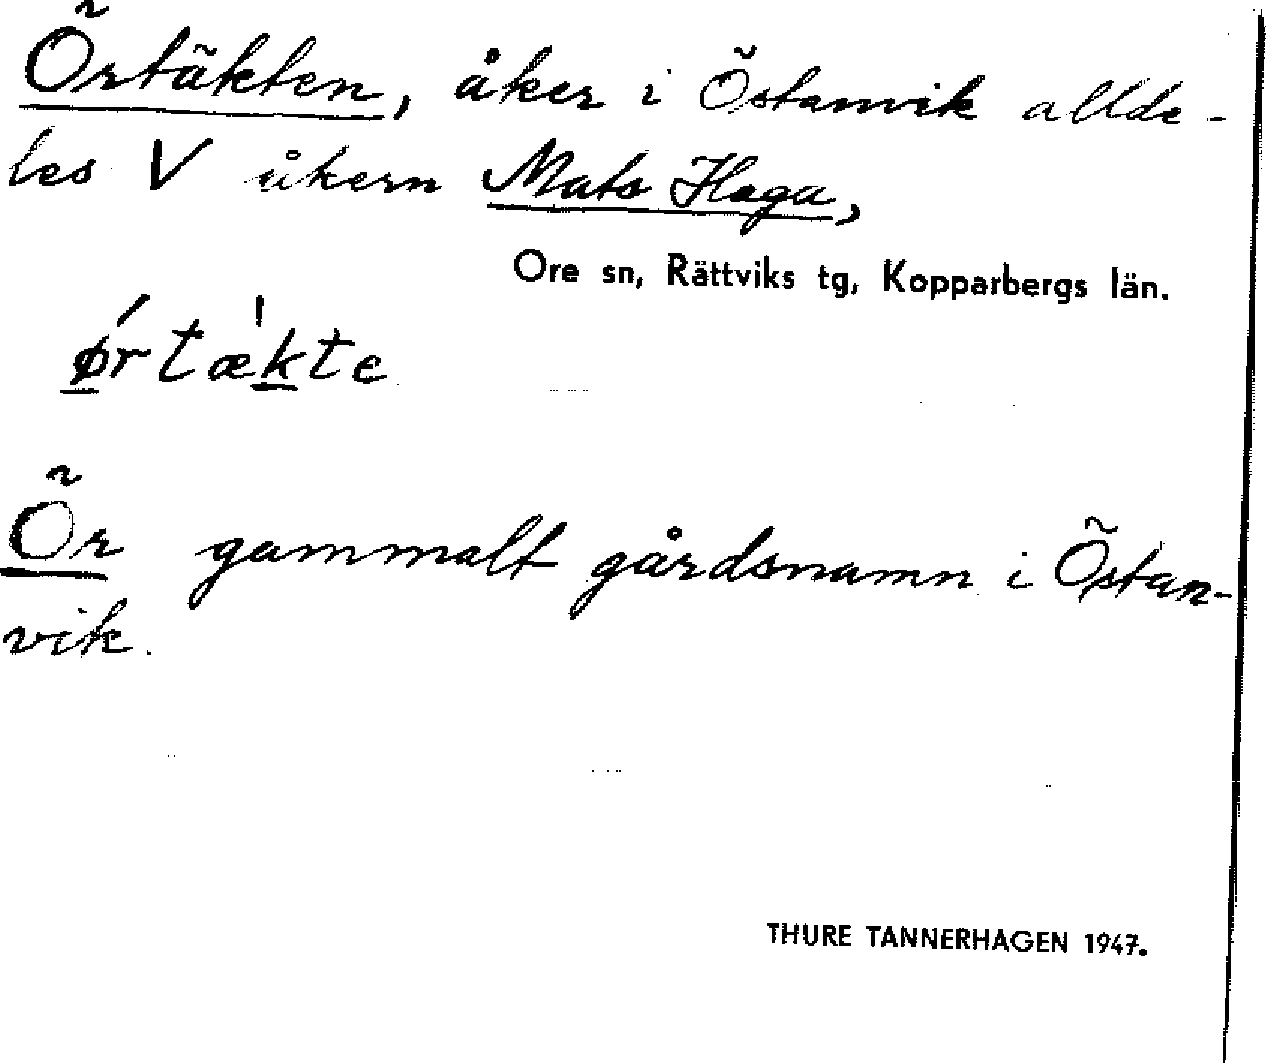 Örtäkten, åker i Östanvik allde-
les V åkern Mats Haga,
Ore sn, Rättviks tg, Kopparbergs län.
ǿrtæ̀kte
Ör gammalt gårdsnamn i Östan-
vik.
THURE TANNERHAGEN 1947.